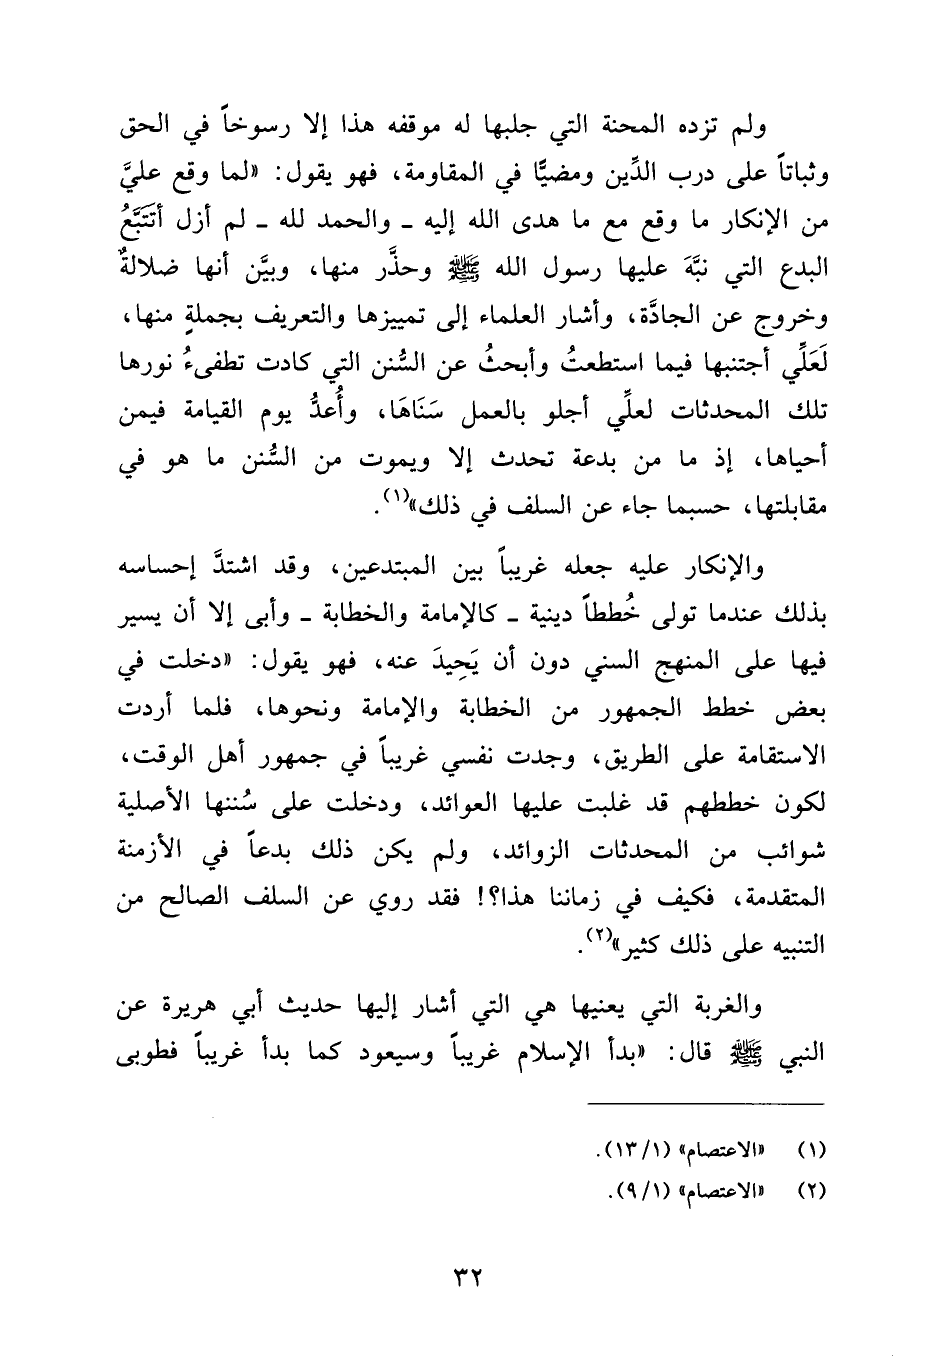 ولم تزده المحنة التي جلبها له موقفه هذا إلا رسوخاً في الحق
وثباتاً على درب الدِّين ومضيًّا في المقاومة، فهو يقول: «لما وقع عليَّ
من الإنكار ما وقع مع ما هدى الله إليه ـ والحمد لله ـ لم أزل أَتَتَبَّعُ
البدع التي نبَّهَ عليها رسول الله ﷺ وحذَّر منها، وبيَّن أنها ضلالةٌ
وخروج عن الجادَّة، وأشار العلماء إلى تمييزها والتعريف بجملةٍ منها،
لَعَلِّي أجتنبها فيما استطعتُ وأبحثُ عن السُّنن التي كادت تطفىءُ نورها
تلك المحدثات لعلِّي أجلو بالعمل سَنَاهَا، وأُعدُّ يوم القيامة فيمن
أحياها، إذ ما من بدعة تحدث إلا ويموت من السُّنن ما هو في
مقابلتها، حسبما جاء عن السلف في ذلك»(١).
والإنكار عليه جعله غريباً بين المبتدعين، وقد اشتدَّ إحساسه
بذلك عندما تولى خُططاً دينية ـ كالإمامة والخطابة ـ وأبى إلا أن يسير
فيها على المنهج السني دون أن يَحِيدَ عنه، فهو يقول: «دخلت في
بعض خطط الجمهور من الخطابة والإمامة ونحوها، فلما أردت
الاستقامة على الطريق، وجدت نفسي غريباً في جمهور أهل الوقت،
لكون خططهم قد غلبت عليها العوائد، ودخلت على سُننها الأصلية
شوائب من المحدثات الزوائد، ولم يكن ذلك بدعاً في الأزمنة
المتقدمة، فكيف في زماننا هذا؟! فقد روي عن السلف الصالح من
التنبيه على ذلك كثير»(٢).
والغربة التي يعنيها هي التي أشار إليها حديث أبي هريرة عن
النبي ﷺ قال: «بدأ الإسلام غريباً وسيعود كما بدأ غريباً فطوبى
(١) «الاعتصام» (١/١٣).
(٢) «الاعتصام» (١/٩).
٣٢